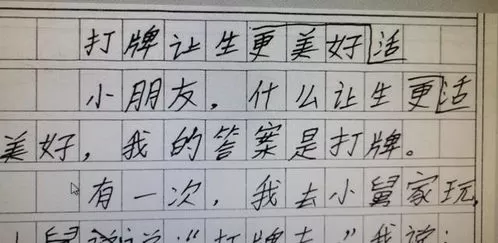 打牌让生更美好活
小朋友，什么让生更活
美好，我的答案是打牌。
有一次，我去小舅家玩，
小舅 说“打牌去”我说：